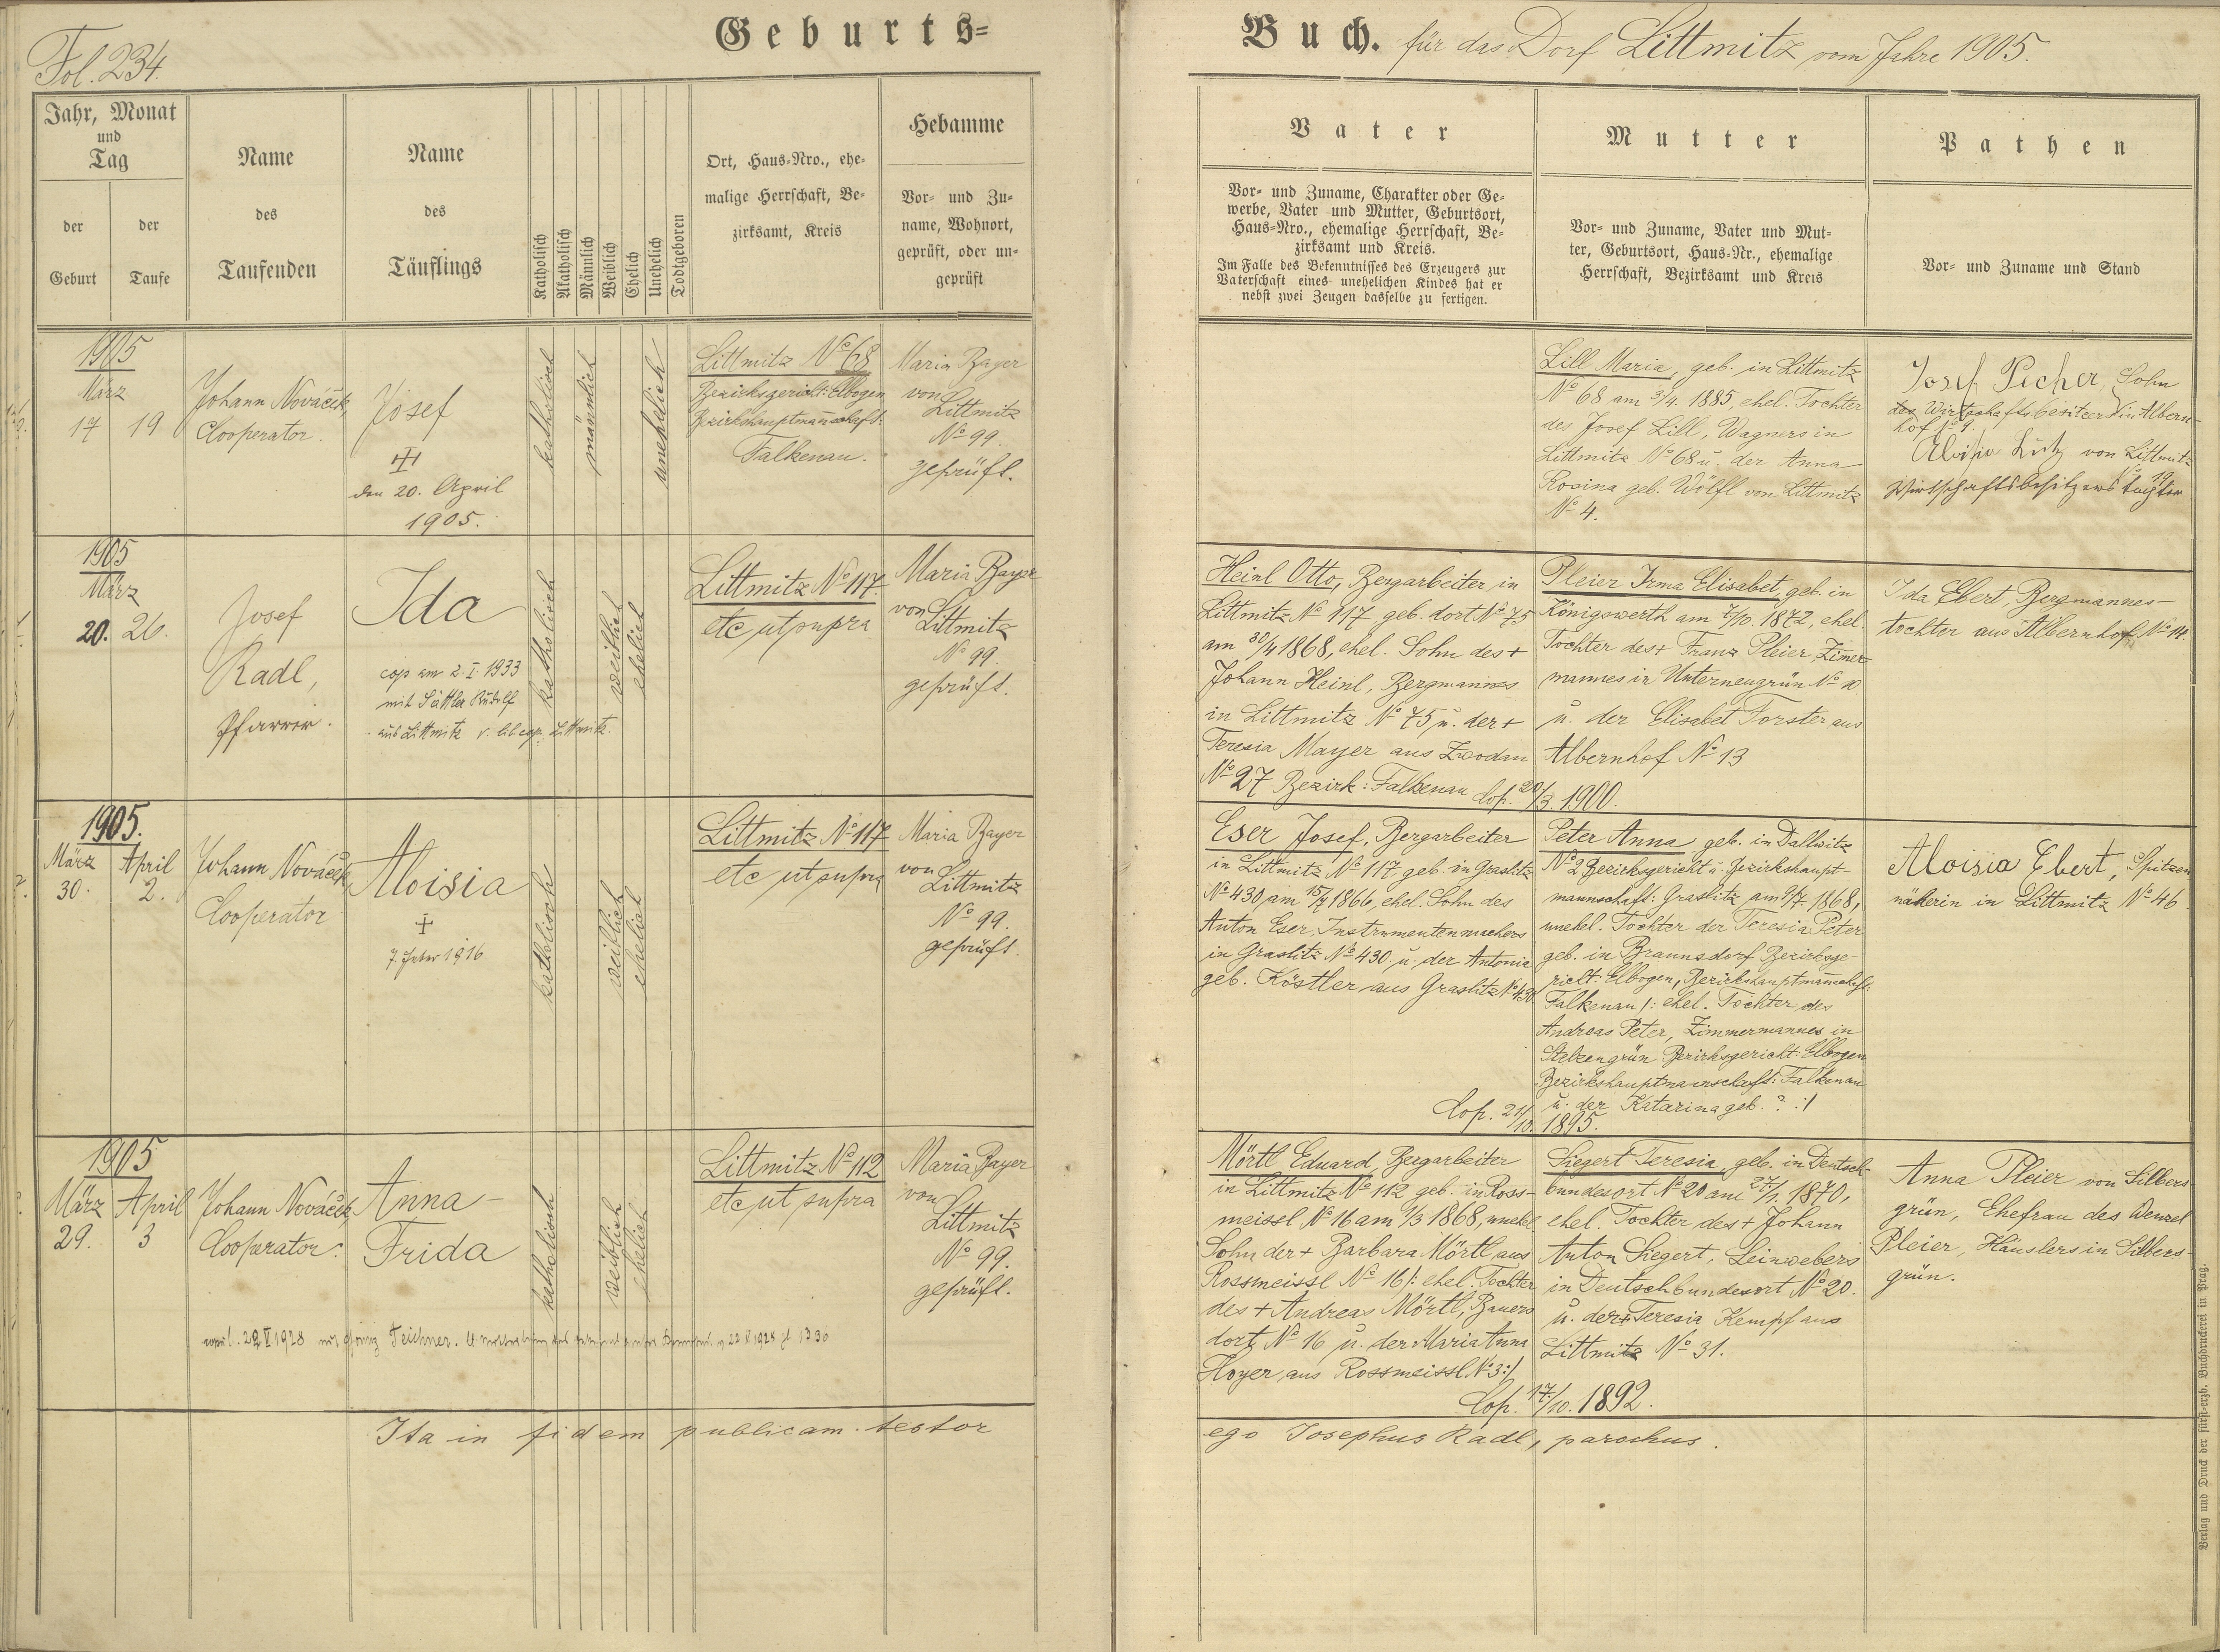 Fol. 234.
Geburts=
Jahr, Monat
und
Tag
der
Geburt
der
Taufe
Name
des
Taufenden
Name
des
Täuflings
Katholisch
Akatholisch
Männlich
Weiblich
Ehelich
Unehelich
Todtgeboren
Ort, Haus=Nro., ehe=
malige Herrschaft, Be=
zirksamt, Kreis
Hebamme
Vor= und Zu=
name, Wohnort,
geprüft, oder un=
geprüft
1905
März
17 19
Johann Nováček,
Cooperator.
Josef
den 20. April
1905.
katholisch
männlich
unehelich
Littmitz No 68
Bezirksgericht: Elbogen
Bezirkshauptmannschaft:
Falkenau.
Maria Bayer
von
Littmitz
No 99.
geprüft.
1905
März
20. 26.
Josef
Radl,
Pfarrer.
Ida
cop am 2. I. 1933
mit Sattler Rudolf
aus Littmitz v. lib cop. Littmitz.
katholisch
weiblich
ehelich
Littmitz No 117.
etc ut supra
Maria Bayer
von
Littmitz
No 99.
geprüft.
1905.
März
30.
April
2.
Johann Nováček
Cooperator
Aloisia
+
katholisch
weiblich
ehelich
Littmitz No 117
etc ut supra
Maria Bayer
von
Littmitz
No 99.
geprüft.
1905
März
29.
April
3
Johann Nováček,
Cooperator.
Anna
Frida
katholisch
weiblich
ehelich
Littmitz No 112
etc ut supra
Maria Bayer
von
Littmitz
No 99.
geprüft.
Teichner.
Ita in fidem publicam testor
Buch. für das Dorf Littmitz vom Jahre 1905.
Vater
Vor= und Zuname, Charakter oder Ge=
werbe, Vater und Mutter, Geburtsort,
Haus=Nro., ehemalige Herrschaft, Be=
zirksamt und Kreis.
Im Falle des Bekenntnisses des Erzeugers zur
Vaterschaft eines unehelichen Kindes hat er
nebst zwei Zeugen dasselbe zu fertigen.
Mutter
Vor= und Zuname, Vater und Mut=
ter, Geburtsort, Haus=Nr., ehemalige
Herrschaft, Bezirksamt und Kreis
Pathen
Vor= und Zuname und Stand
Lill Maria, geb. in Littmitz
No 68 am 3/4. 1885, ehel. Tochter
des Josef Lill, Wagners in
Littmitz No 68 u. der Anna
Rosina geb. Wölfl von Littmitz
No 4.
Josef Pecher, Sohn
des Wirtschaftsbesitzers in Albern-
hof No 9.
Aloisia Lutz von Littmitz
Wirtschaftsbesitzers Tochter
Heinl Otto, Bergarbeiter in
Littmitz No 117 geb. dort No 75
am 30/4 1868, ehel. Sohn des +
Johann Heinl, Bergmannes
in Littmitz No 75 u. der +
Teresia Mayer aus Zwodau
No 27 Bezirk: Falkenau
Pleier Irma Elisabet, geb. in
Königswerth am 7/10. 1872, ehel.
Tochter des + Franz Pleier, Zimmer-
mannes in Unterneugrün No
u. der Elisabet Forster aus
Albernhof No 13
Cop. 20/3. 1900.
Ida Ebert, Bergmannes-
tochter aus Albernhof No 14.
Eser Josef, Bergarbeiter
in Littmitz No 117 geb. in Graslitz
No 430 am 15/7 1866, ehel. Sohn des
Anton Eser, Instrumentenmachers
in Graslitz No 430 u. der Antonia
geb. Köstler aus Graslitz No 430.
Peter Anna, geb. in Dallwitz
No 2 Bezirksgericht u. Bezirkshaupt-
mannschaft: Graslitz am 1868,
unehel. Tochter der Teresia Peter
geb. in Braunsdorf Bezirksge-
richt: Elbogen, Bezirkshauptmannschaft:
Falkenau /: ehel. Tochter des
Andreas Peter, Zimmermannes in
Stelzengrün Bezirksgericht: Elbogen
Bezirkshauptmannschaft: Falkenau
u. der Katarina geb. ? :/
Cop. 21/10. 1895.
Aloisia Ebert, Spitzen
näherin in Littmitz No 46.
Mörtl Eduard, Bergarbeiter
in Littmitz No 112 geb. in Ross-
meissl No 16 am 1/3 1868, unehel
Sohn der + Barbara Mörtl aus
Rossmeissl No 16 /: ehel. Tochter
des + Andreas Mörtl, Bauers
dort No 16 u. der Maria Anna
Hoyer, aus Rossmeissl No 3 :/
Siegert Teresia, geb. in Deutsch-
bundesort No 20 am 1870,
ehel. Tochter des + Johann
Anton Siegert, Leinwebers
in Deutschbundesort No 20.
u. der + Teresia Kempf aus
Littmitz No 31.
Cop. 17/10. 1892.
Anna Pleier von Silbers-
grün, Ehefrau des Wenzel
Pleier, Häuslers in Silbers-
grün.
ego Josephus Radl, parochus.
Verlag und Druck der fürst=erzb. Buchdruckerei in Prag.